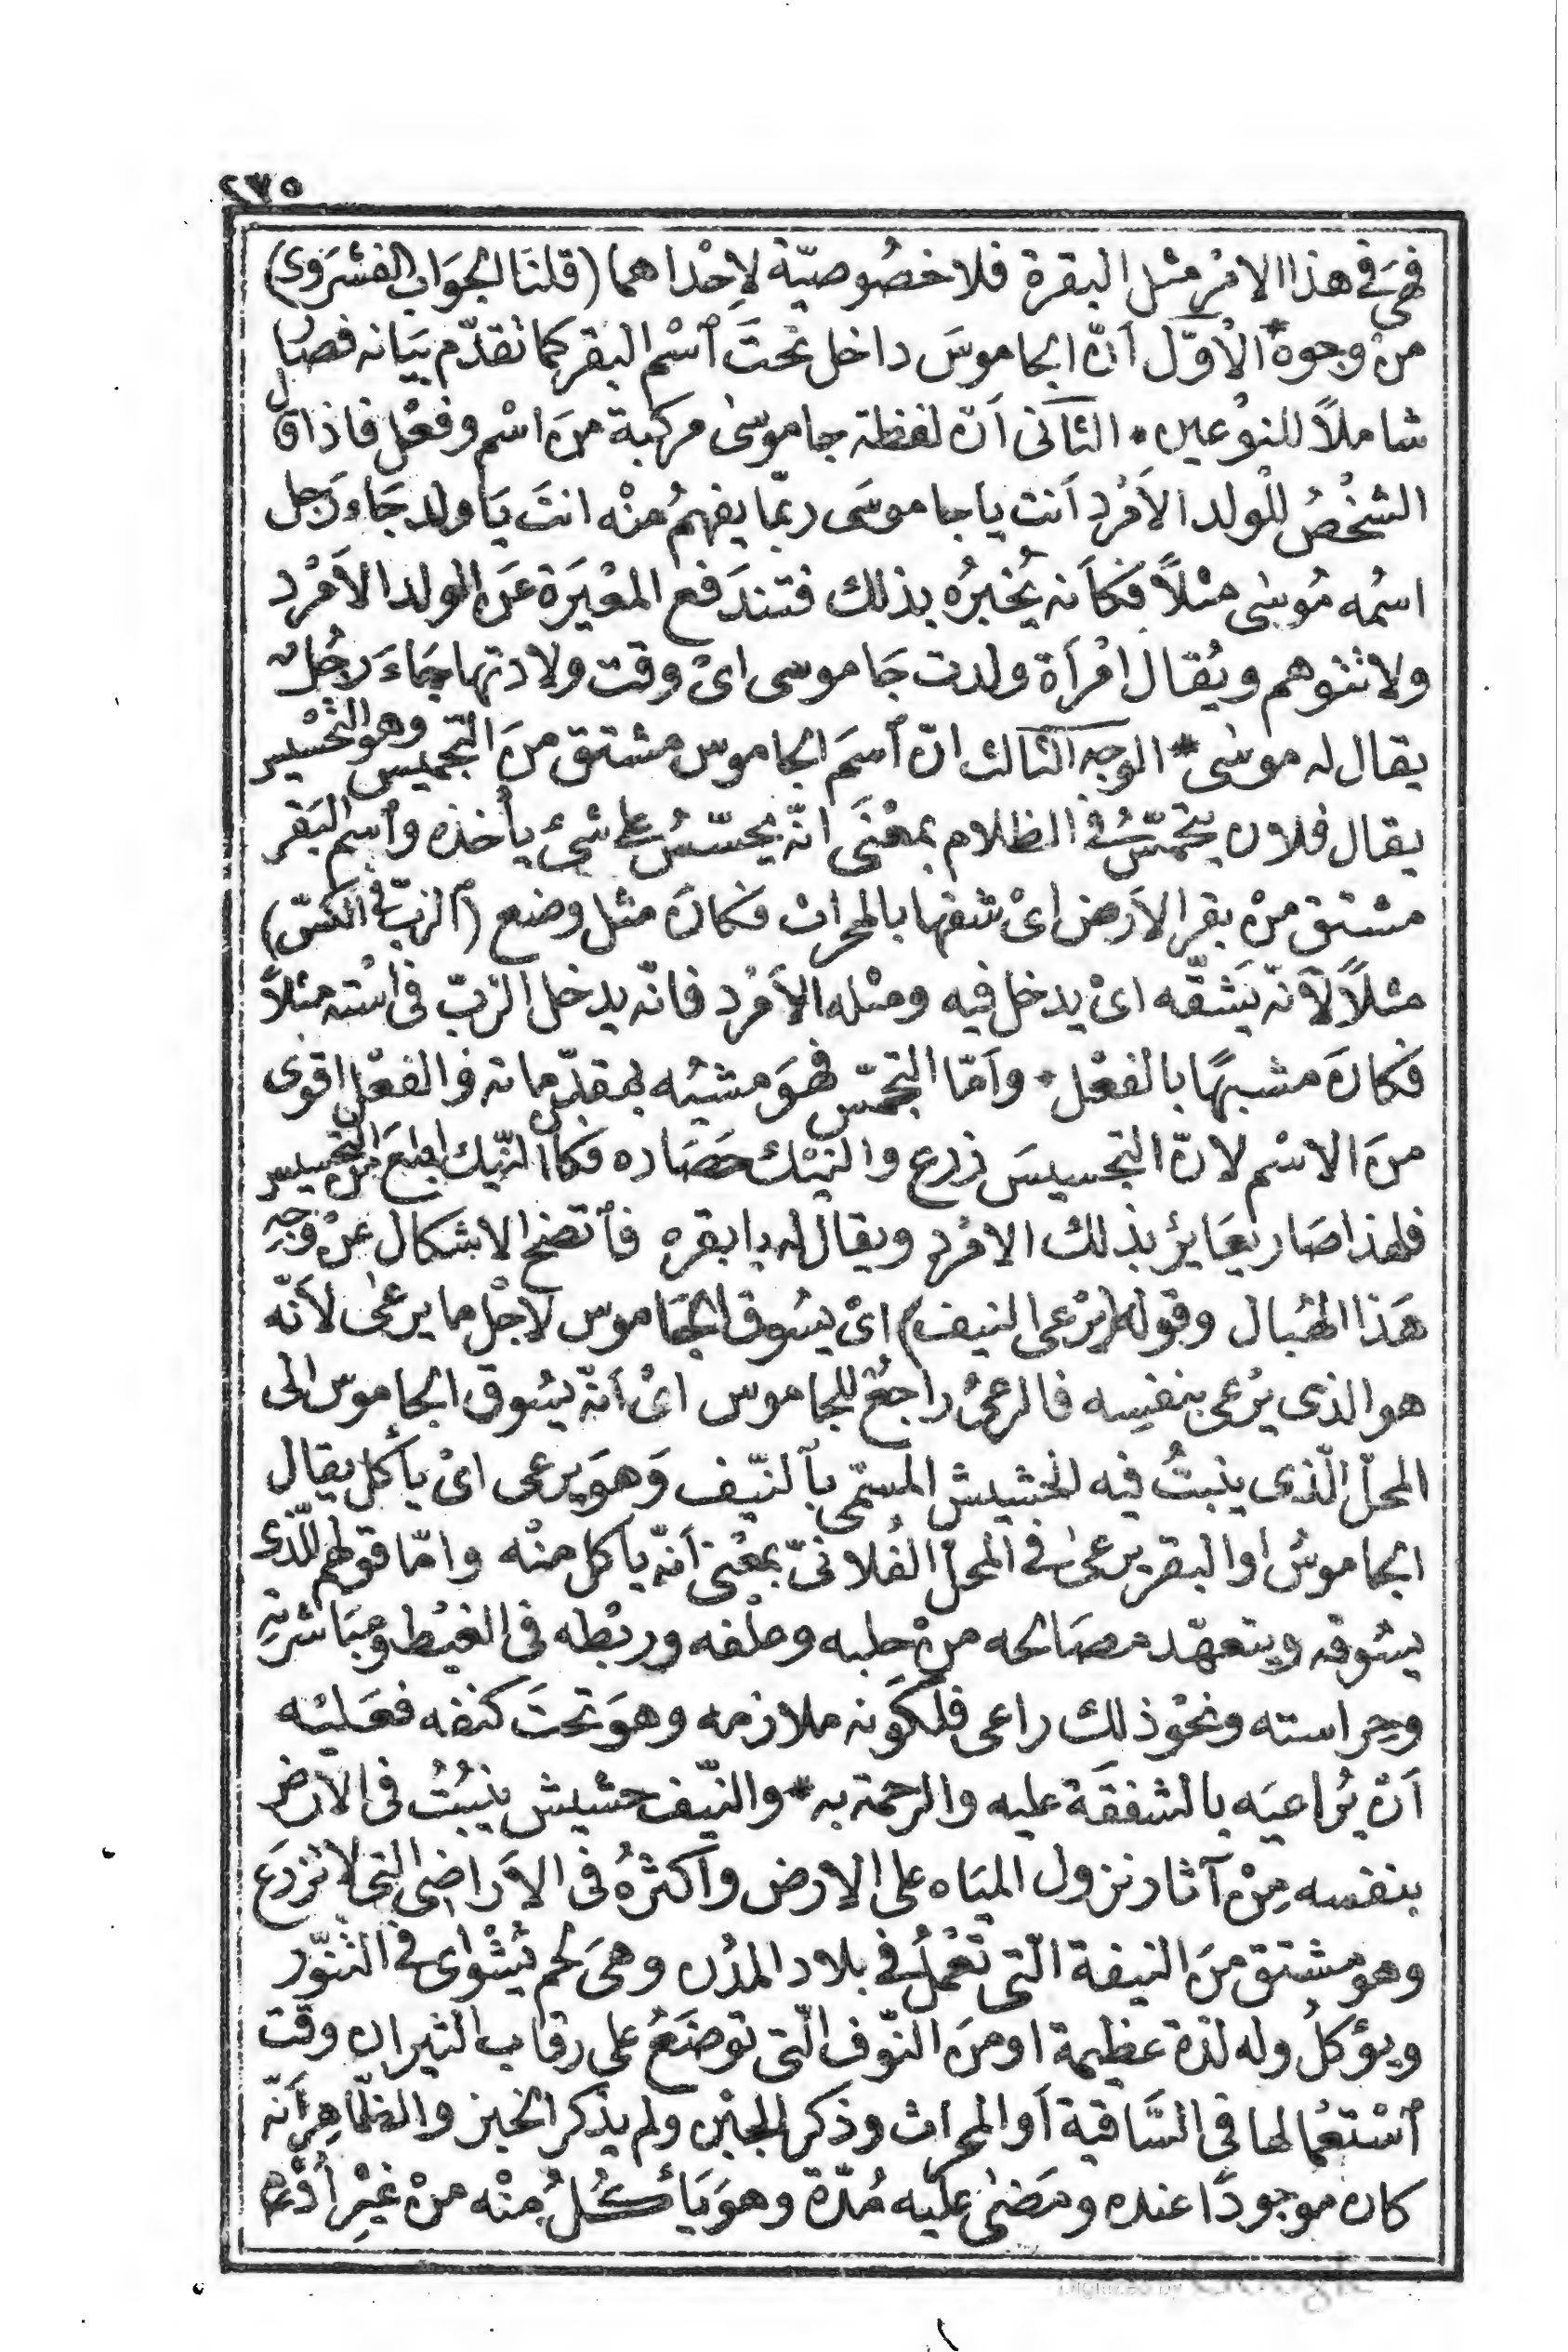 ٢٧٥
فهى فى هذا الامْر مثْل البقرة فلا خصُوصيّة لاِحْداهما (قلنَا الجوَاب الفشرَوى)
منْ وجوه * الْاوّل اَنّ الجاموسَ داخل تحتَ ٱسْم البقر كما تقدّم بيَانه فصَا
شاملاً للنوْعين * الثاَّنى اَنّ لفظة جاموسى مركبة منَ اسْم وفعْل فاذاقَال
الشخْصُ للولد الاَمْرد اَنت ياجاموسَى ربّما يفهمُ منْه انتَ يَاولد جَاء رَجل
اسمُه مُوسٰى مثلاً فكاَنه يُخبرُه بذلك فتندَفع المعْيَرة عَن الولد الاَمْرد
ولا تتوهم ويُقال امْرَأة ولدت جَاموسى اىْ وقت ولادتها جَاءَ رجُل
يقال له موسٰى * الوجه الثالث انّ ٱسمَ الجاموس مشتق منَ التجميس وهو التحْسيس
يقال فلان يتجمّسُ فى الظلام بمعْنَى انّه يحسّسُ على شئ يأخذه وٱسم البَقر
مشتق منْ بقر الاَرض اىْ شقها بالمحراث فكانَ مثل وضع (ٱلزبّ فى الكسّ)
مثلاً لاَنّه يَشقّه اىْ يدخل فيه ومثله الاَمْرد فانّه يدخل الزبّ فى اسْته مثلاً
فكانَ مشبهًا بالفعْل * واَمّا التجمّس فهوَ مشبّه بمقدّماته والفعْل اقوى
منَ الاسْم لانّ التحسيسَ زرع والنيْك حَصَاده فكاَ النّيك ابلغَ منَ التحسيس
فلهذا صَار يعَاير بذلك الامْرد ويقال له يا بقره فاَتضح الاشكال عنْ وَجه
هَذا الهْبال وقوله (يَرْعى النيف) اىْ يسُوق الجَاموس لاجْل ما يرعٰى لاَنّه
هو الذى يرْعى بنفسِه فالرعىُ راجعٌ للجاموس اىْ اَنّه يسُوق الجاموس الى
المحلّ الّذى ينبتُ فيه الحشيش المسمّى بٱلنيّف وَهوَ يرعى اىْ يأكل يقال
الجاموسُ او البقر يرعىٰ فى المحلّ الفُلانىّ بمعْنى اَنّه يأكل منْه وامّا قولهم للّذى
يسُوقه ويتعهّد مصَالحه منْ حلبه وعلْفه وربْطه فى الغيْط ومبَاشرته
وحِراسته ونحْو ذلك راعى فلكَونه ملازمه وهوَ تحتَ كنفه فعَليْه
اَنْ يُراعيَه بالشفقَة عليه والرحمة به * والنّيف حشيش ينبُتُ فى الاَرض
بنفسه مِنْ آثار نزول الميَاه على الارض واَكثرُه فى الاَراضى التى لا تزرَع
وهو مشتق منَ النيفة الّتى تعْملُ فى بلاد المدُن وهىَ لحم يُشْوٰى فى التنوّر
ويؤكلُ وله لذة عظيمة او منَ النّوف الّتى توضَعُ على رقاب الثيران وقت
ٱسْتعْمالها فى السَّاقية اَو المحراث وذكر الجبْن ولم يذْكر الخبز والظّاهِر اَنّه
كان موجودًا عنده ومَضىٰ عليْه مُدّة وهوَ يَأكُلُ مِنْه منْ غيْرِ اُدْم